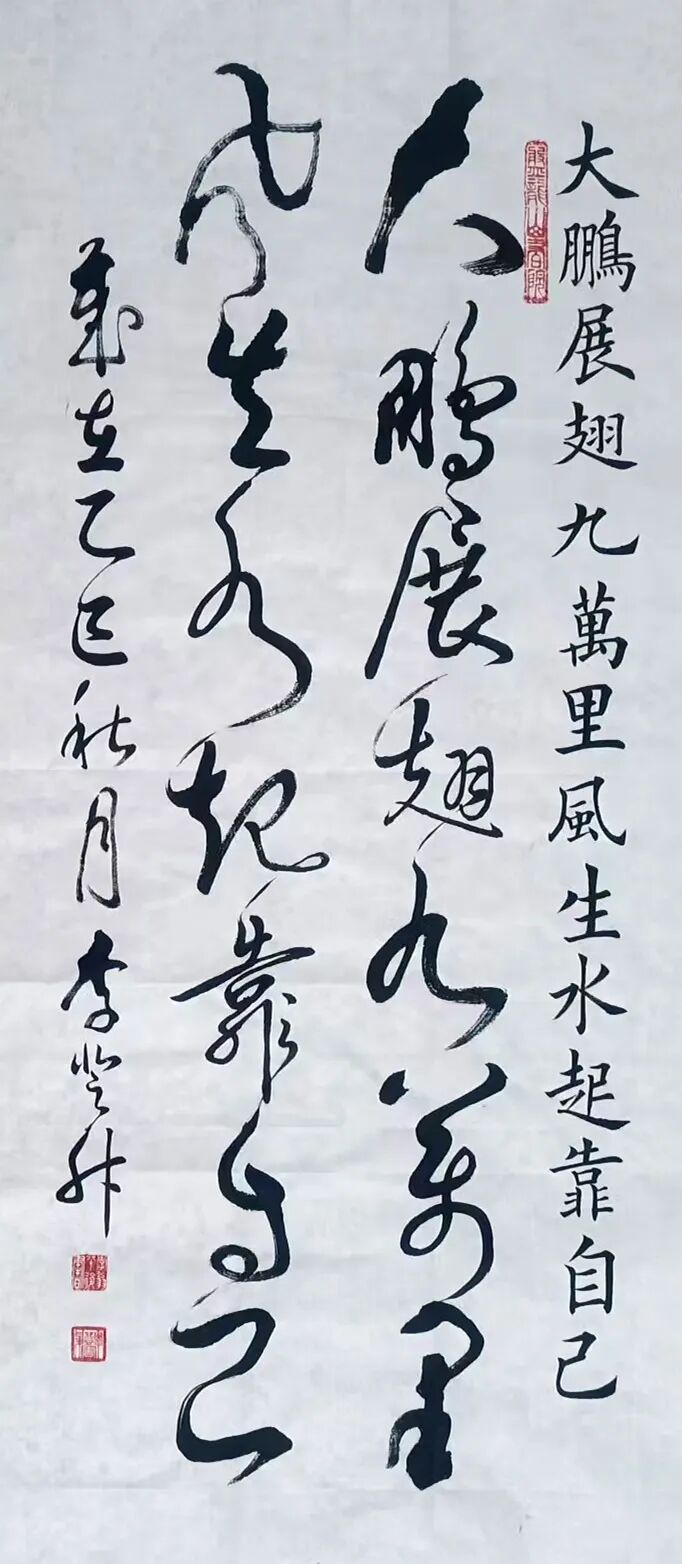 大鵬展翅九萬里風生水起靠自己
大鵬展翅九萬里
風生水起靠自己
歲在乙巳秋月李登科